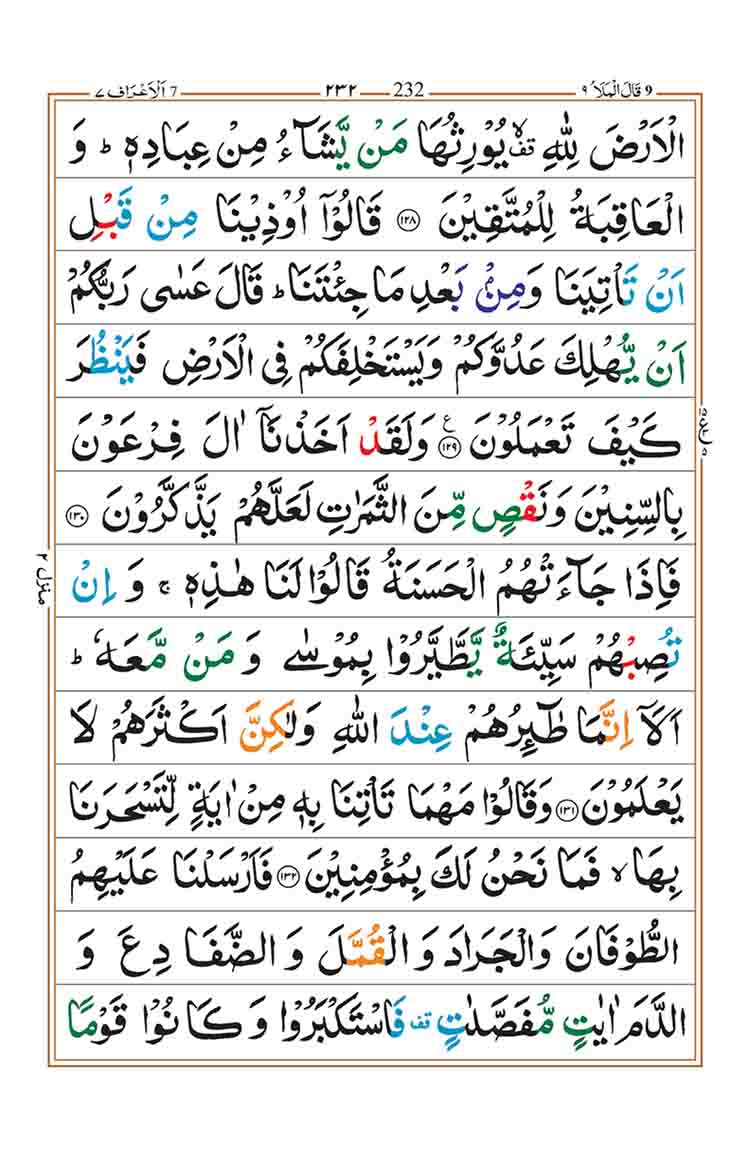 ٩ قَالَ الْمَلَاُ ٩ 232 ٢٣٢ 7 اَلْاَعْرَاف ٧
الْاَرْضَ لِلّٰهِ ۙ۫ تف یُوْرِثُهَا مَنْ یَّشَآءُ مِنْ عِبَادِهٖ ؕ وَ
الْعَاقِبَةُ لِلْمُتَّقِیْنَ ﴿۱۲۸﴾ قَالُوْۤا اُوْذِیْنَا مِنْ قَبْلِ
اَنْ تَاْتِیَنَا وَمِنْۢ بَعْدِ مَا جِئْتَنَا ؕ قَالَ عَسٰی رَبُّكُمْ
اَنْ یُّهْلِكَ عَدُوَّكُمْ وَیَسْتَخْلِفَكُمْ فِی الْاَرْضِ فَیَنْظُرَ
كَیْفَ تَعْمَلُوْنَ ﴿۱۲۹﴾ ع وَلَقَدْ اَخَذْنَاۤ اٰلَ فِرْعَوْنَ
بِالسِّنِیْنَ وَنَقْصٍ مِّنَ الثَّمَرٰتِ لَعَلَّهُمْ یَذَّكَّرُوْنَ ﴿۱۳۰﴾
فَاِذَا جَآءَتْهُمُ الْحَسَنَةُ قَالُوْا لَنَا هٰذِهٖ ۚ وَ اِنْ
تُصِبْهُمْ سَیِّئَةٌ یَّطَّیَّرُوْا بِمُوْسٰی وَ مَنْ مَّعَهٗ ؕ
اَلَاۤ اِنَّمَا طٰٓئِرُهُمْ عِنْدَ اللّٰهِ وَلٰكِنَّ اَكْثَرَهُمْ لَا
یَعْلَمُوْنَ ﴿۱۳۱﴾ وَقَالُوْا مَهْمَا تَاْتِنَا بِهٖ مِنْ اٰیَةٍ لِّتَسْحَرَنَا
بِهَا ۙ فَمَا نَحْنُ لَكَ بِمُؤْمِنِیْنَ ﴿۱۳۲﴾ فَاَرْسَلْنَا عَلَیْهِمُ
الطُّوْفَانَ وَالْجَرَادَ وَ الْقُمَّلَ وَ الضَّفَادِعَ وَ
الدَّمَ اٰیٰتٍ مُّفَصَّلٰتٍ تف فَاسْتَكْبَرُوْا وَ كَانُوْا قَوْمًا
منزل ۲